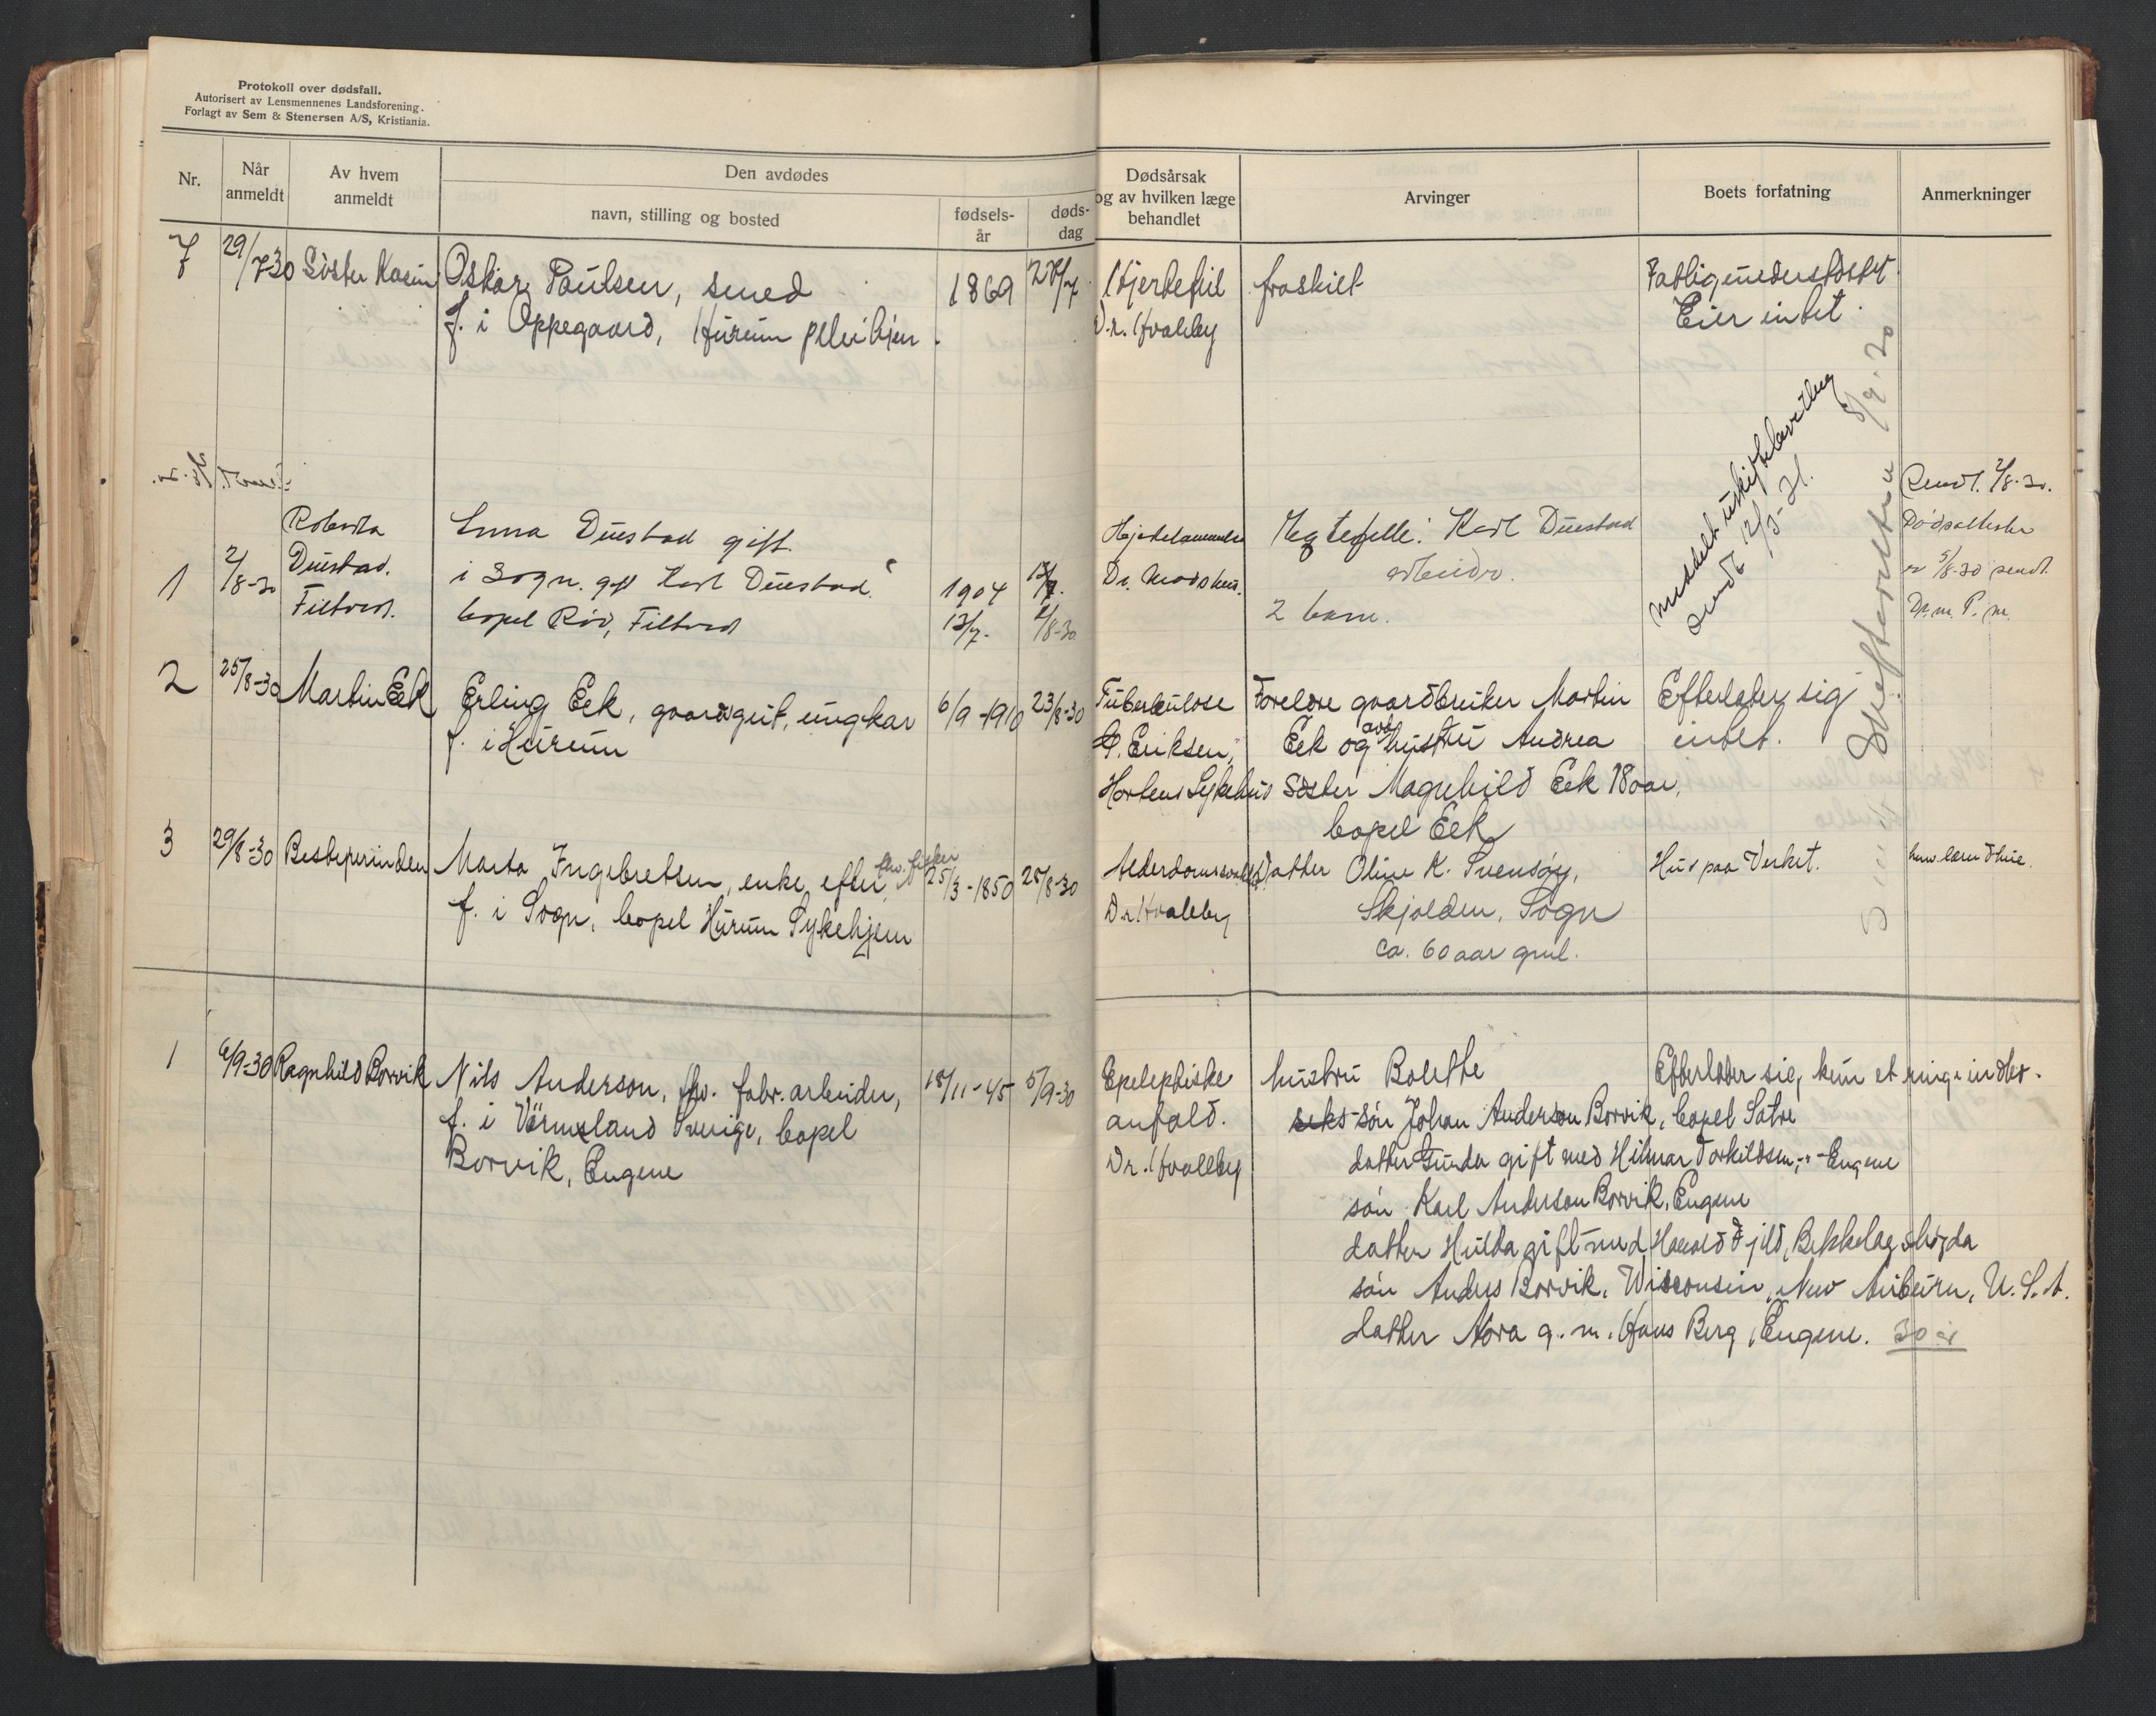 Protokoll over dødsfall.
Autorisert av Lensmennenes Landsforening.
Forlagt av Sem & Stenersen A/S, Kristiania.
Nr.
Når anmeldt
Av hvem anmeldt
Den avdødes
navn, stilling og bosted
fødsels-år
døds-dag
Dødsårsak og av hvilken læge behandlet
Arvinger
Boets forfatning
Anmerkninger
7 29/7 30 Søster Karin Oskar Paulsen, smed 1869 28/7 Hjertefeil fraskilt Fattigunderstøttet
f. i Oppegaard, Hurum Pleiehjem. Dr. Hvalby Eier intet.
Roberta Enna Duestad gift. Hjertelammelse Ægtefelle: Karl Duestad Sendt. 2/8-30.
1 2/8-30 Duestad. i Sogn. gift Karl Duestad. 1904 Dr. arbeider. Dødsattester
Filtved. bopel Rød, Filtvet 13/7. 2/8-30 2 barn. 5/8-30 sendt.
meddelt uskifte
Sendt 12/3-31.
Skifteretten 8/9-30
2 25/8-30 Martin Eek Erling Eek, gaardgut, ungkar 6/9-1910 23/8-30 Tuberkulose Foreldre gaardbruker Martin Efterlater sig
f. i Hurum Eriksen, Eek og hustru Andrea intet.
Hortens Sykehus Søster Magnhild Eek 18 aar,
bopel Eek
3 29/8-30 Bestyrerinden Marta Ingebretsen, enke efter fhv. fisker 25/3-1850 28/8-30 Datter Oline K. Svensøy, Hus paa Verket.
f. i Sogn, bopel Hurum Sykehjem Dr. Hvalby Skjolden, Sogn
ca. 60 aar gml.
1 6/9-30 Ragnhild Borvik Nils Anderson, fhv. fabr. arbeider, 18/11-45 5/9-30 Epeleptiske hustru Bolette Efterlater sig kun et ringe indbo.
f. i Värmeland Sverige, bopel anfald. søn Johan Anderson Borvik, bopel Sætre
Borvik, Engene Dr. Hvalby datter Gunda gift med Hilmar Torkildsen, -"- Engene
søn Karl Anderson Borvik, Engene
datter Hulda gift med Harald Fjeld, Bekkelagshøgda
søn Anders Borvik, Wisconsin, New Auburn, U.S.A.
datter Nora g. m. Hans Berg, Engene. 30 år